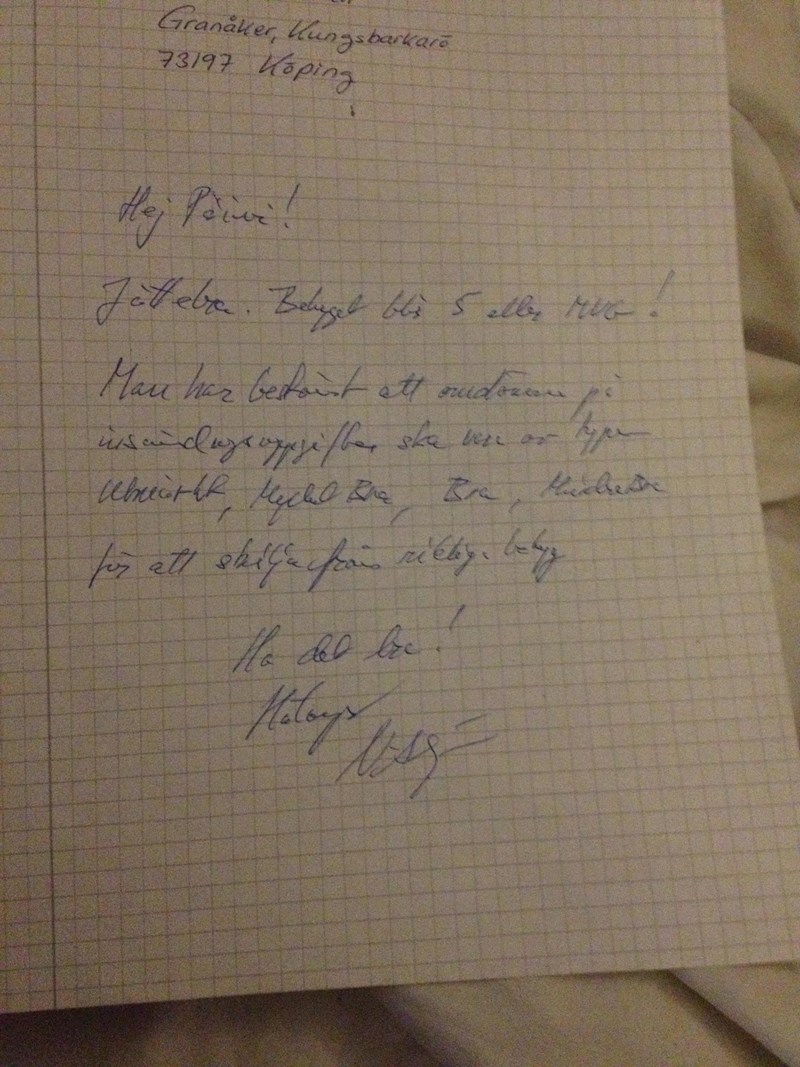 Granåker, Kungsbarkarö
73197 Köping
Hej Päivi!
Jättebra. Betyget blir 5 eller MVG!
Man har bestämt att omdömen på
insändningsuppgifter ska vara av typen
Utmärkt, Mycket Bra, Bra, Mindre Bra
för att skilja från riktiga betyg
Ha det bra!